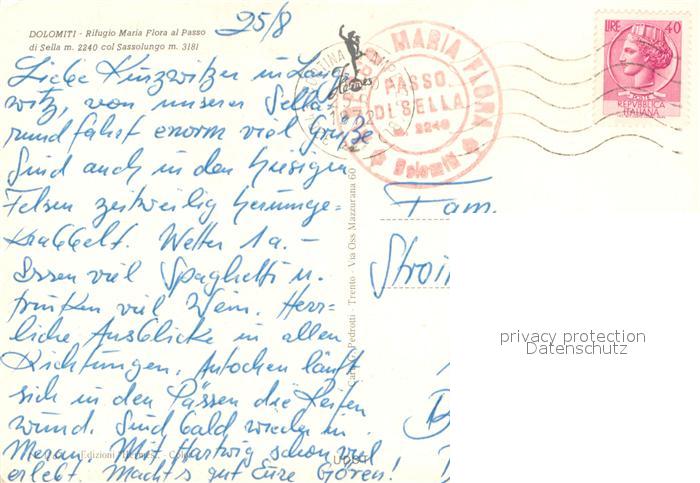 25/8
DOLOMITI - Rifugio Maria Flora al Passo
di Sella m. 2240 col Sassolungo m. 3181
Liebe Kurzwitzer in Lang-
witz, von unserer Sella-
rundfahrt enorm viel Grüße
Sind auch in den hiesigen
Felsen zeitweilig herumge-
krabbelt. Wetter 1a. –
Essen viel Spaghetti u.
trinken viel Wein. Herr-
liche Ausblicke in allen
Richtungen. Autochen läuft
sich in den Pässen die Reifen
wund. Sind bald wieder in
Meran. Mit Hartwig schon viel
erlebt. Macht's gut Eure Gören!
Edizioni "Hermes"
Hermes
MARIA FLORA
PASSO
DI SELLA
m. 2240
Dolomiti
LIRE 40
REPVBBLICA
ITALIANA
Pedrotti - Trento - Via Oss Mazzurana 60
Fam.
Stroi
privacy protection
Datenschutz